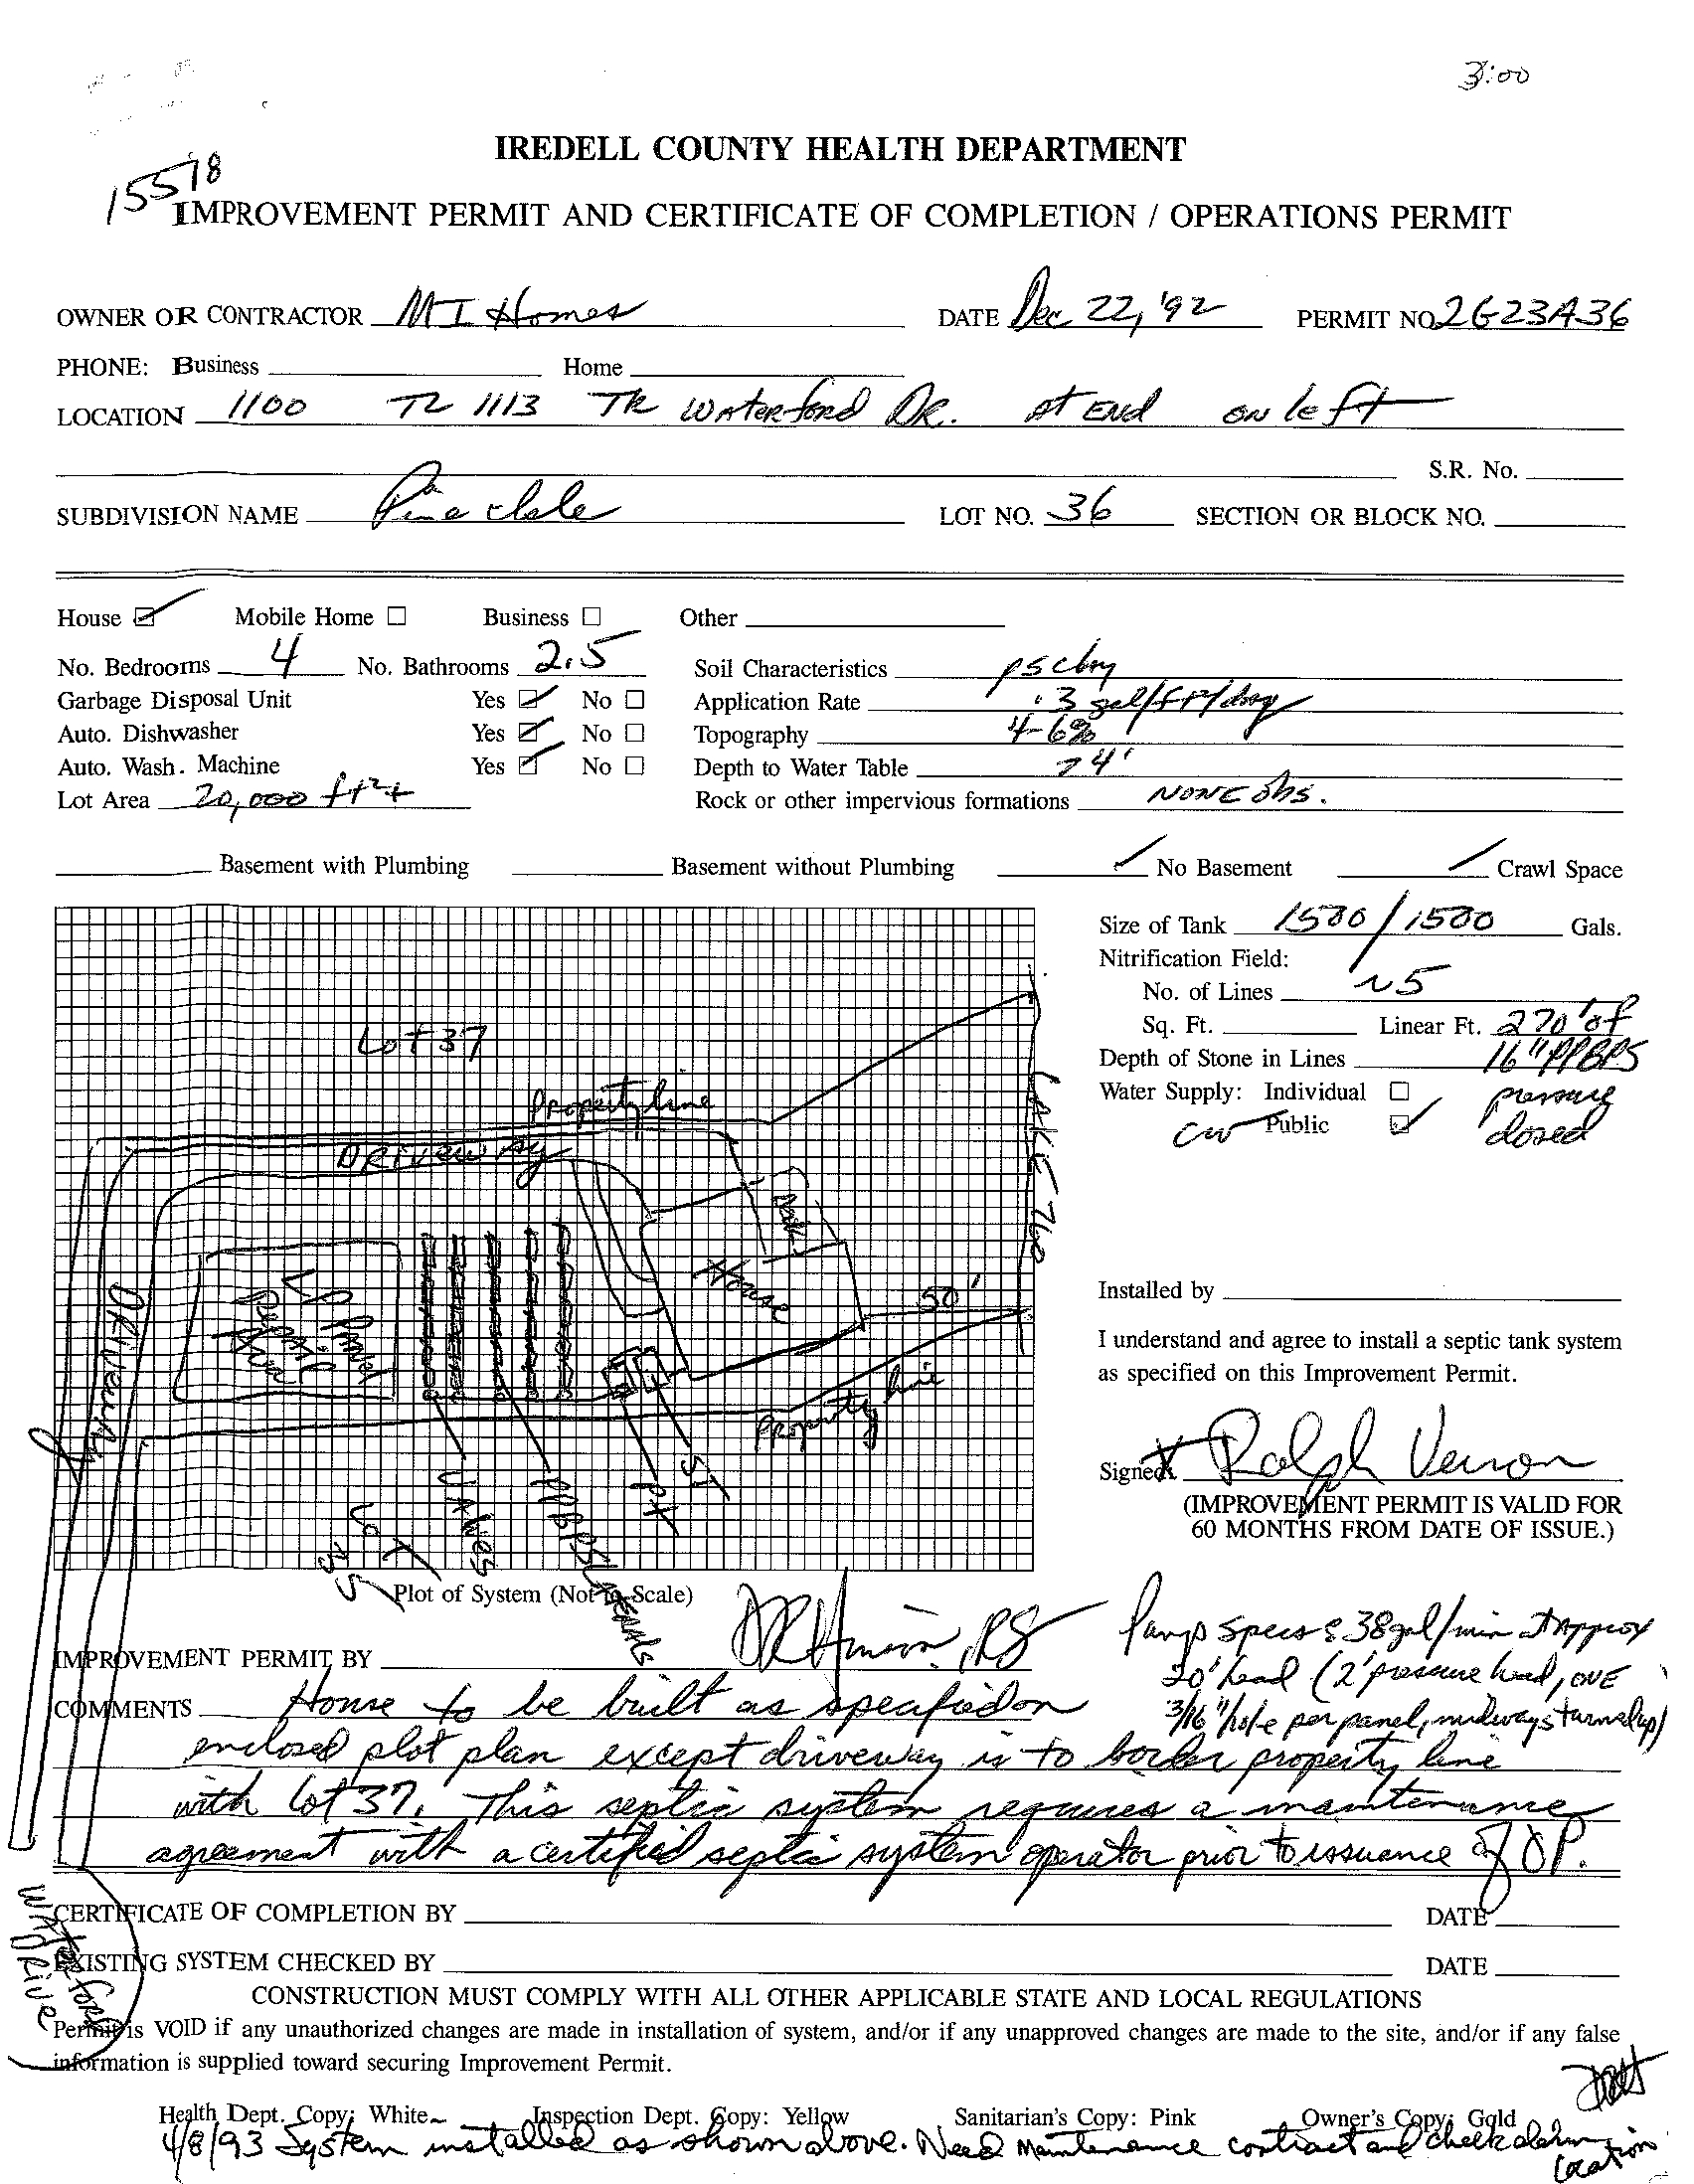 3:00
IREDELL COUNTY HEALTH DEPARTMENT
15578
IMPROVEMENT PERMIT AND CERTIFICATE OF COMPLETION / OPERATIONS PERMIT
OWNER OR CONTRACTOR MI Homes DATE Dec 22, '92 PERMIT NO. 2G23A36
PHONE: Business Home
LOCATION 1100 TL 1113 TR Waterford DR. At End on left
S.R. No.
SUBDIVISION NAME LOT NO. 36 SECTION OR BLOCK NO.
House Mobile Home Business Other
No. Bedrooms 4 No. Bathrooms 2.5 Soil Characteristics
Garbage Disposal Unit Yes No Application Rate .3 gal/ft²/day
Auto. Dishwasher Yes No Topography 4-6%
Auto. Wash. Machine Yes No Depth to Water Table >4'
Lot Area 20,000 ft²+ Rock or other impervious formations NONE obs.
Basement with Plumbing Basement without Plumbing No Basement Crawl Space
Size of Tank 1500/1500 Gals.
Nitrification Field:
No. of Lines ~5
Sq. Ft. Linear Ft. 270' of
Depth of Stone in Lines 16" PPBPS
Water Supply: Individual pressure
CW Public dosed
Lot 37
Property line
DRIVEWAY
LAKE 760
Deck
House
50'
Driveway
Property line
ST
PX
PPBPS Laterals
VALVES
Lot 35
Installed by
I understand and agree to install a septic tank system
as specified on this Improvement Permit.
Signed X Ralph Vernon
(IMPROVEMENT PERMIT IS VALID FOR
60 MONTHS FROM DATE OF ISSUE.)
Plot of System (Not to Scale)
Pump Specs: 38 gal/min at Approx
20' head (2' pressure head, ONE
3/16" hole per panel, midways turned up)
IMPROVEMENT PERMIT BY
COMMENTS House to be built as specified on
enclosed plot plan except driveway is to border property line
with Lot 37. This septic system requires a maintenance
agreement with a certified septic system operator prior to issuance of OP.
Waterford Drive
CERTIFICATE OF COMPLETION BY DATE
EXISTING SYSTEM CHECKED BY DATE
CONSTRUCTION MUST COMPLY WITH ALL OTHER APPLICABLE STATE AND LOCAL REGULATIONS
Permit is VOID if any unauthorized changes are made in installation of system, and/or if any unapproved changes are made to the site, and/or if any false
information is supplied toward securing Improvement Permit.
Health Dept. Copy: White Inspection Dept. Copy: Yellow Sanitarian's Copy: Pink Owner's Copy: Gold
4/8/93 System installed as shown above. Need Maintenance contract and check alarm
location